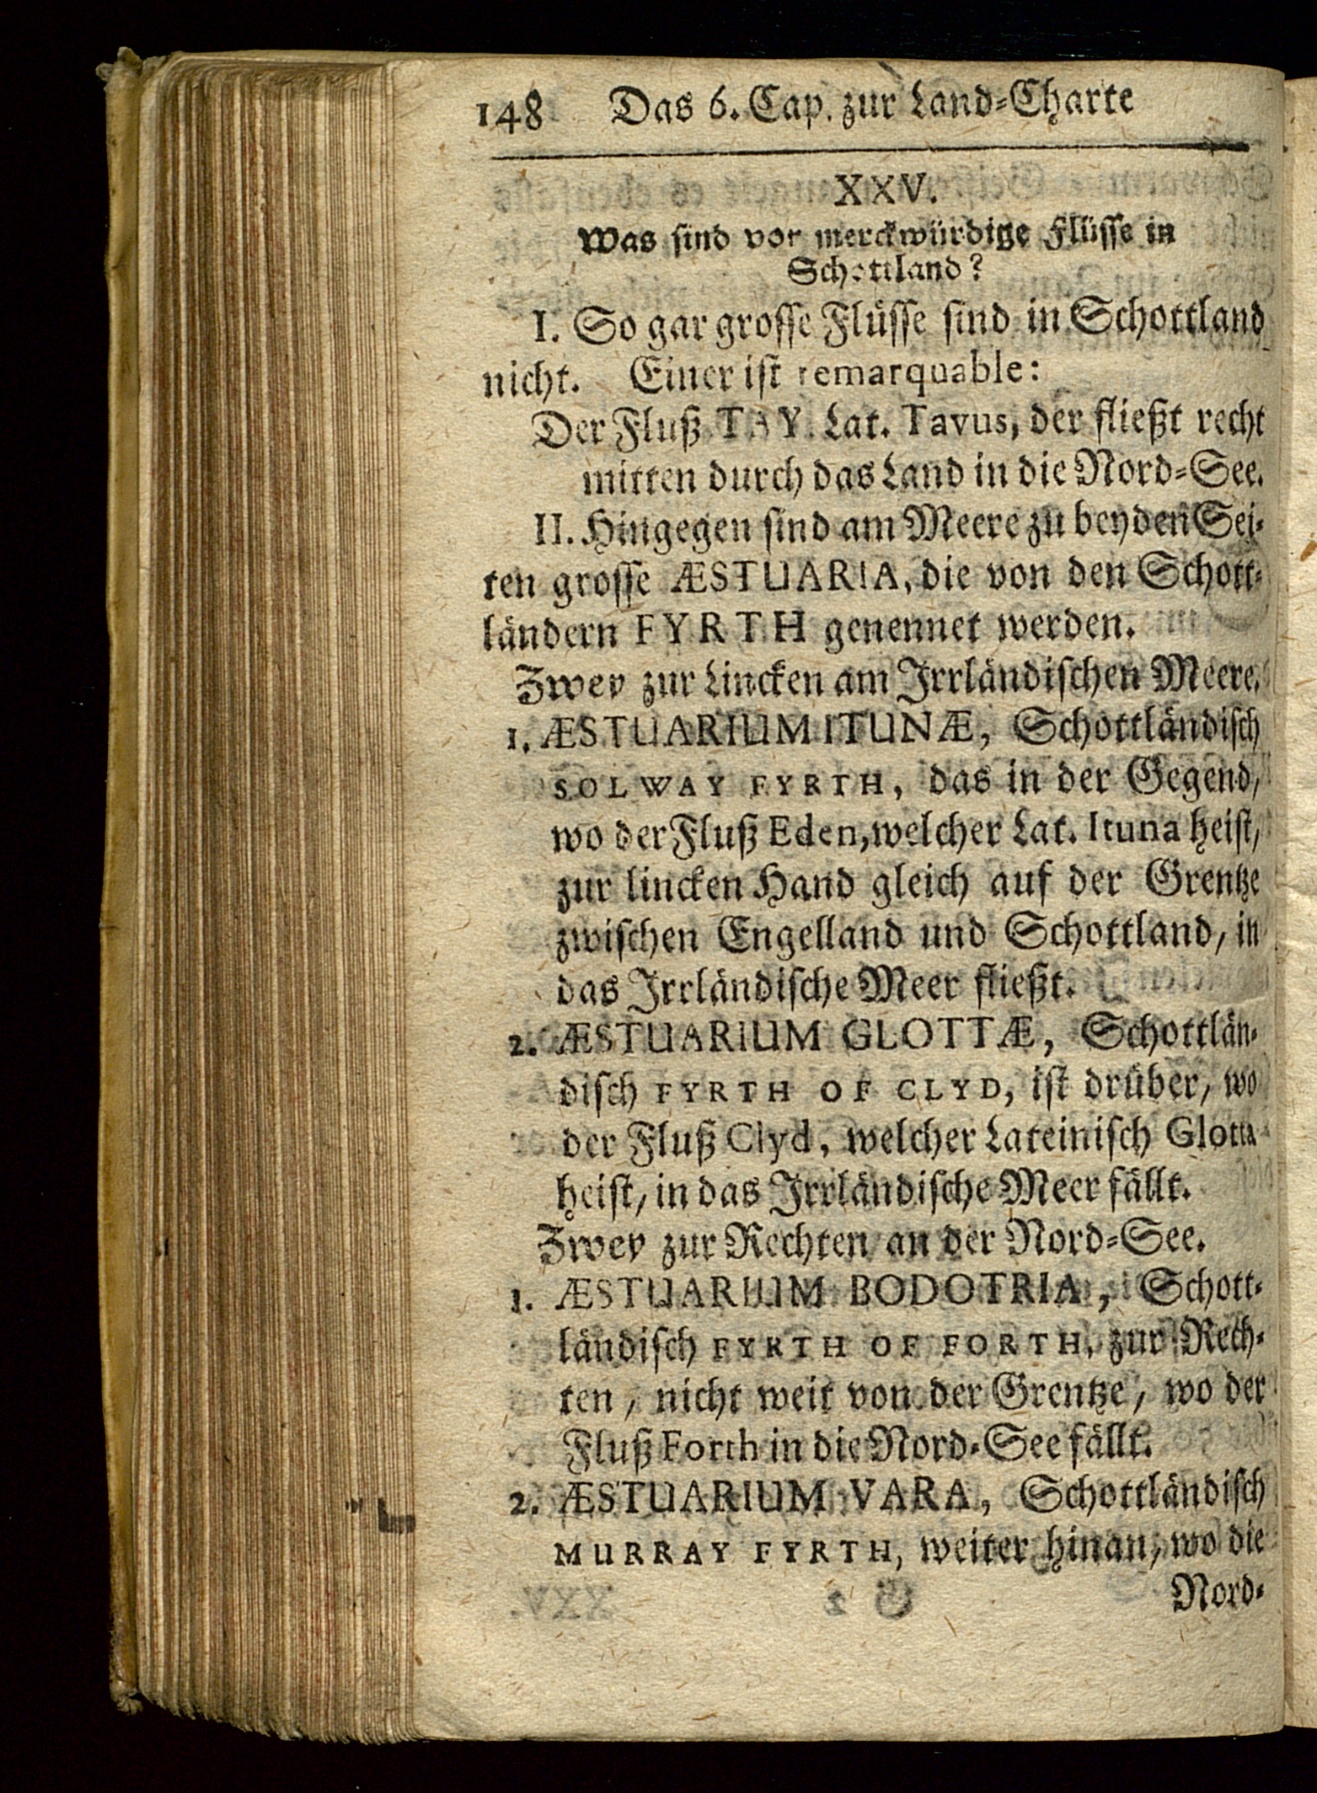 148 Das 6. Cap. zur Land-Charte
XXV.
Was sind vor merckwürdige Flüsse in
Schottland?
I. So gar grosse Flüsse sind in Schottland
nicht. Einer ist remarquable:
Der Fluß TAY. Lat. Tavus, der fließt recht
mitten durch das Land in die Nord-See.
II. Hingegen sind am Meere zu beyden Sei-
ten grosse ÆSTUARIA, die von den Schott-
ländern FYRTH genennet werden.
Zwey zur Lincken am Irrländischen Meere.
1. ÆSTUARIUM ITUNÆ, Schottländisch
SOLWAY FYRTH, das in der Gegend,
wo der Fluß Eden, welcher Lat. Ituna heist,
zur lincken Hand gleich auf der Grentze
zwischen Engelland und Schottland, in
das Irrländische Meer fließt.
2. ÆSTUARIUM GLOTTÆ, Schottlän-
disch FYRTH OF CLYD, ist drüber, wo
der Fluß Clyd, welcher Lateinisch Glotta
heist, in das Irrländische Meer fällt.
Zwey zur Rechten an der Nord-See.
1. ÆSTUARIUM BODOTRIA, Schott-
ländisch FYRTH OF FORTH, zur Rech-
ten, nicht weit von der Grentze, wo der
Fluß Forth in die Nord-See fällt.
2. ÆSTUARIUM VARA, Schottländisch
MURRAY FYRTH, weiter hinan, wo die
Nord-